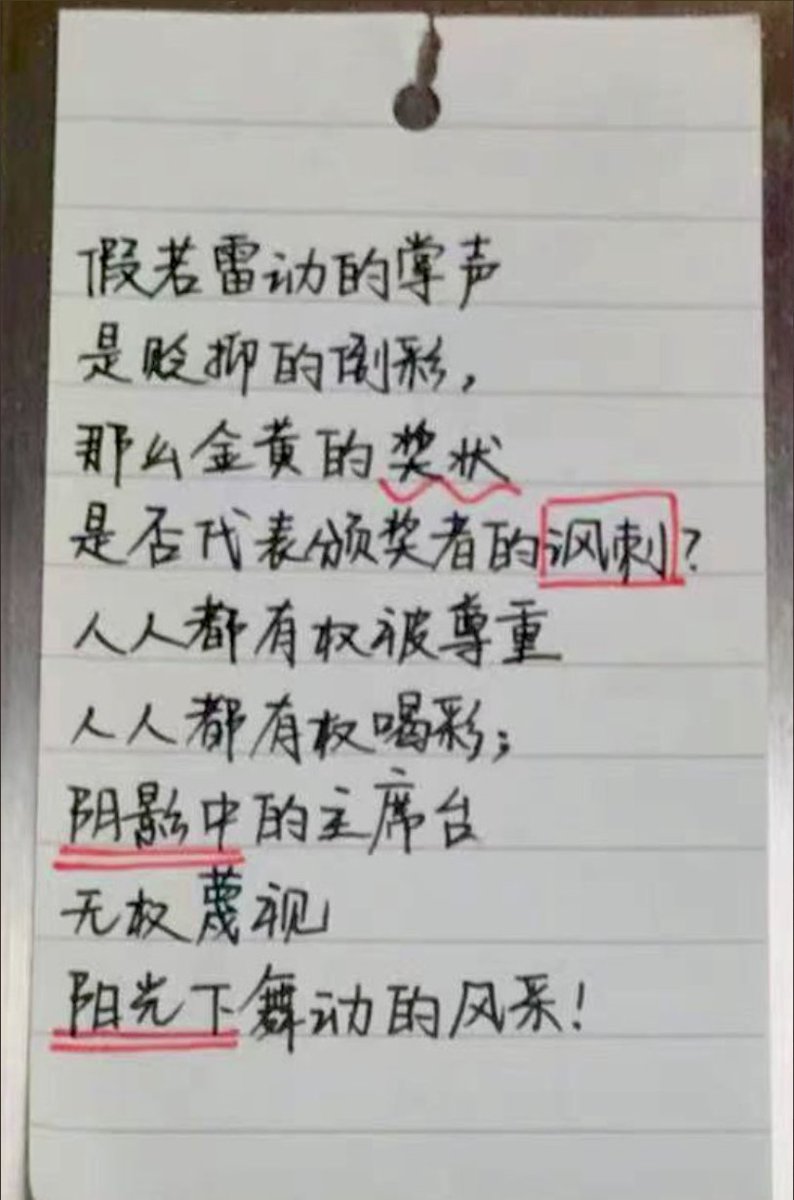 假若雷动的掌声
是贬抑的倒彩，
那么金黄的奖状
是否代表颁奖者的讽刺？
人人都有权被尊重
人人都有权喝彩；
阴影中的主席台
无权蔑视
阳光下舞动的风采！